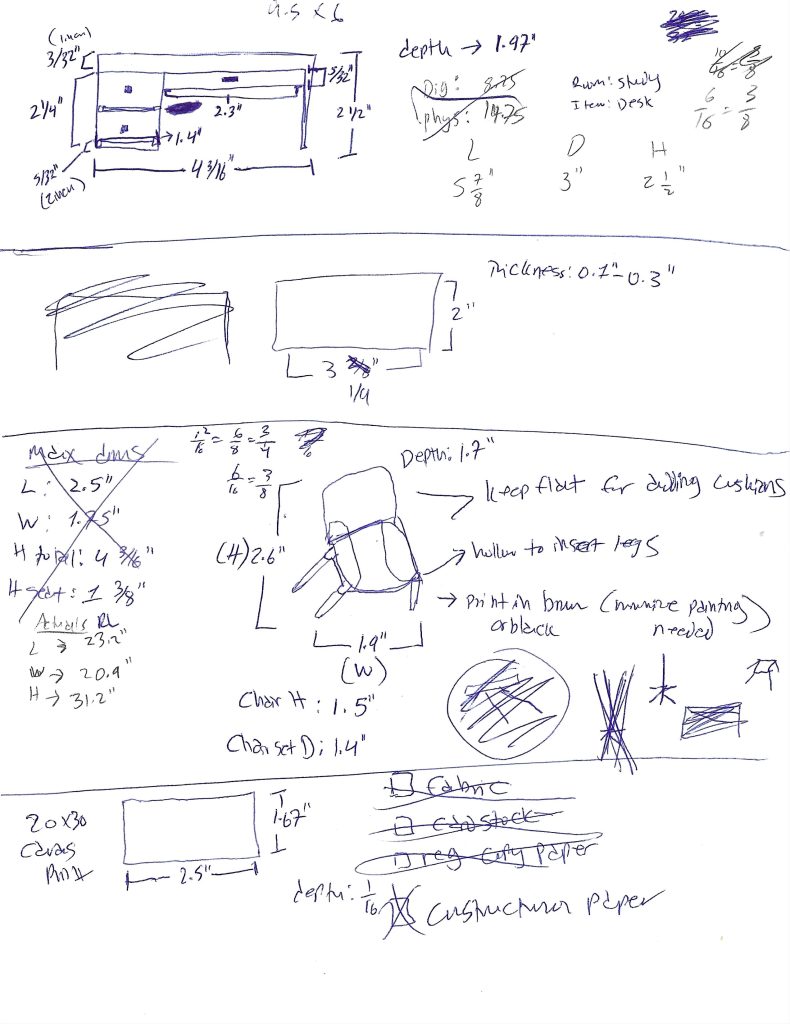 9.5 x 6
3/32"
depth → 1.97"
5/32"
Dig: 8.75
Room: Study
10/16 = 5/8
2 1/4"
2.3"
2 1/2"
phys: 14.75
Item: Desk
6/16 = 3/8
→1.4"
L D H
5/32"
4 3/16"
5 7/8 3" 2 1/2"
Thickness: 0.1"-0.3"
2"
3 "
1/4
max dims
12/16 = 6/8 = 3/4
Depth: 1.7"
L: 2.5"
6/16 = 3/8
→ keep flat for adding cushions
W: 1.75"
H total: 4 3/16"
(H) 2.6"
→ hollow to insert legs
H seat: 1 3/8"
→ print in brown (minimize painting
or black needed)
Actuals RL
L → 23.2"
1.9"
W → 20.9"
(W)
H → 31.2"
Chair H: 1.5"
Chair seat D: 1.4"
20x30
Canvas
Print
1.67"
2.5"
Fabric
Cardstock
reg copy paper
depth: 1/16
Construction paper